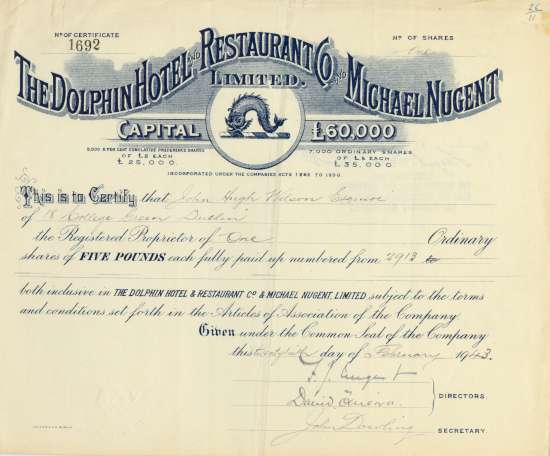 26
11
No OF CERTIFICATE
1692
No OF SHARES
One
THE DOLPHIN HOTEL AND RESTAURANT Co AND MICHAEL NUGENT
LIMITED.
CAPITAL £60,000
5,000 6 PER CENT CUMULATIVE PREFERENCE SHARES
OF £5 EACH
£25,000.
7,000 ORDINARY SHARES
OF £5 EACH
£35,000.
INCORPORATED UNDER THE COMPANIES ACTS 1862 TO 1890.
This is to Certify that John Hugh Wilson Esquire
of 18 College Green Dublin
the Registered Proprietor of One Ordinary
shares of FIVE POUNDS each fully paid up numbered from 2913 to
both inclusive in THE DOLPHIN HOTEL & RESTAURANT Co & MICHAEL NUGENT, LIMITED subject to the terms
and conditions set forth in the Articles of Association of the Company
Given under the Common Seal of the Company
this day of February 1943.
F. J. Nugent
David
DIRECTORS.
John Dowling
SECRETARY.